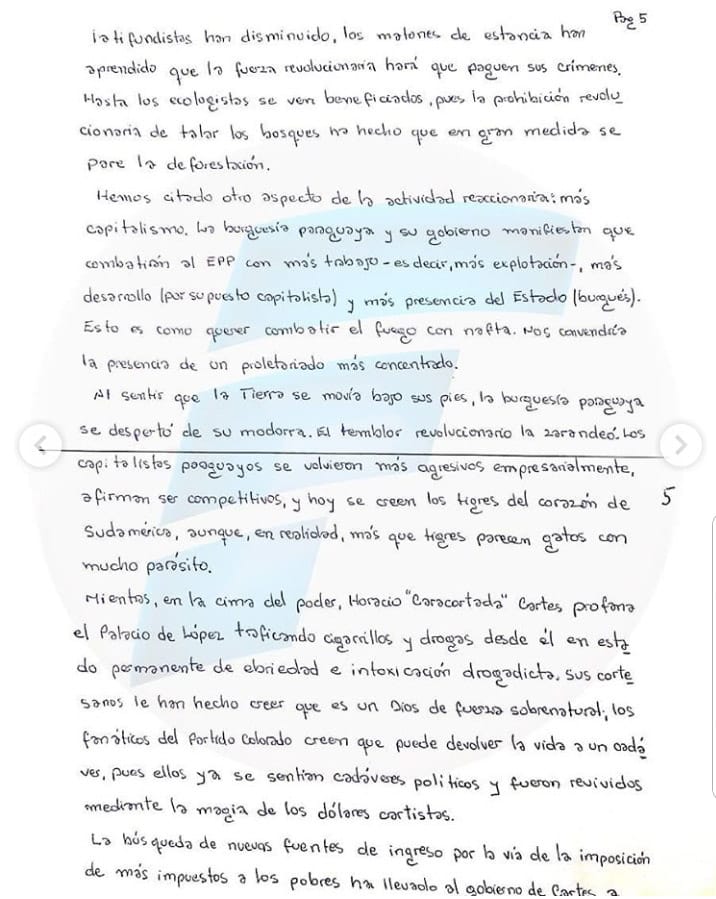 Pag 5
latifundistas han disminuido, los matones de estancia han
aprendido que la fuerza revolucionaria hará que paguen sus crímenes.
Hasta los ecologistas se ven beneficiados, pues la prohibición revolu
cionaria de talar los bosques ha hecho que en gran medida se
pare la deforestación.
Hemos citado otro aspecto de la actividad reaccionaria: más
capitalismo. La burguesía paraguaya y su gobierno manifiestan que
combatirán al EPP con más trabajo - es decir, más explotación-, más
desarrollo (por supuesto capitalista) y más presencia del Estado (burgués).
Esto es como querer combatir el fuego con nafta. Nos convendría
la presencia de un proletariado más concentrado.
Al sentir que la Tierra se movía bajo sus pies, la burguesía paraguaya
se despertó de su modorra. El temblor revolucionario la zarandeó. Los
capitalistas paraguayos se volvieron más agresivos empresarialmente,
afirman ser competitivos, y hoy se creen los tigres del corazón de
5
Sudamérica, aunque, en realidad, más que tigres parecen gatos con
mucho parásito.
Mientras, en la cima del poder, Horacio "Caracortada" Cartes, profana
el Palacio de López traficando cigarrillos y drogas desde él en esta
do permanente de ebriedad e intoxicación drogadicta. Sus corte
sanos le han hecho creer que es un Dios de fuerza sobrenatural; los
fanáticos del Partido Colorado creen que puede devolver la vida a un cadá
ver, pues ellos ya se sentían cadáveres políticos y fueron revividos
mediante la magia de los dólares cartistas.
La búsqueda de nuevas fuentes de ingreso por la vía de la imposición
de más impuestos a los pobres ha llevado al gobierno de Cartes a